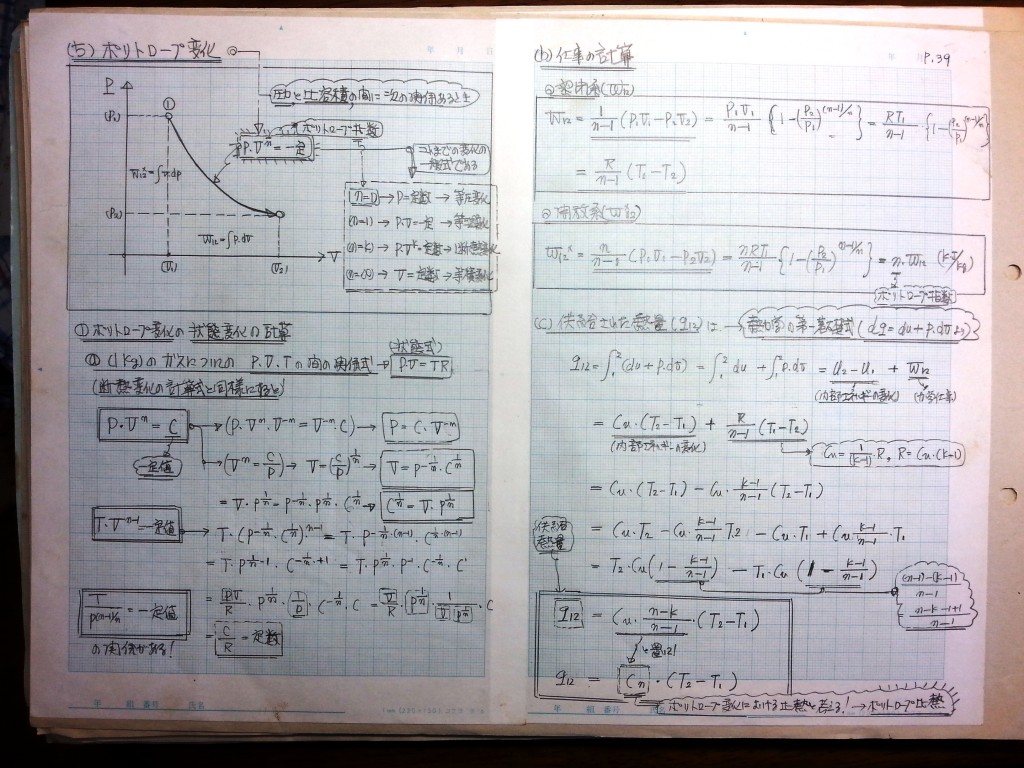 (5) ポリトロープ変化
年 月 日
圧力と比容積の間に=次の関係あるとき
P
(P₁)
①
ポリトロープ指数
P・Vⁿ=一定
これまでの変化の
一般式である
W₁₂*=∫v・dp
n=0 → P=定数 → 等圧変化
(n=1) → P・V=一定 → 等温変化
(P₂)
②
(n=k) → P・Vᵏ=定数 → 断熱変化
W₁₂=∫P・dv
(n=∞) → V=定数 → 等積変化
V
(V₁) (V₂)
① ポリトロープ変化の状態変化の計算
(1kg)のガスについての P.V.Tの間の関係式 → (状態式) P・V=TR
(断熱変化の計算式と同様にすると)
P・Vⁿ = C → (P・Vⁿ・V⁻ⁿ = V⁻ⁿ・C) → P = C・V⁻ⁿ
一定値
(Vⁿ = C/P) → V = (C/P)^1/n → V = P^-1/n・C^1/n
= V・P^1/n = P^-1/n・P^1/n・C^1/n → C^1/n = V・P^1/n
T・Vⁿ⁻¹ 一定値 → T・(P^-1/n・C^1/n)^n-1 = T・P^-1/n・(n-1)・C^-1/n・(n-1)
= T・P^1/n-1・C^-1/n+1 = T・P^1/n・P⁻¹・C^-1/n・C¹
T/P^(n-1)/n = 一定値
= PV/R・P^1/n・1/P・C^-1/n・C = V/R・P^1/n・1/V・1/P^1/n・C
の関係がある!
= C/R = 定数
年 組 番号 氏名
(b) 仕事の計算
P.39
◎ 密閉系(W₁₂)
W₁₂ = 1/n-1 (P₁V₁-P₂V₂) = P₁V₁/n-1 {1-(P₂/P₁)^(n-1)/n} = RT₁/n-1・{1-(P₂/P₁)^(n-1)/n}
= R/n-1 (T₁-T₂)
◎ 開放系(W*₁₂)
W₁₂* = n/n-1 (P₁V₁-P₂V₂) = nRT₁/n-1 {1-(P₂/P₁)^(n-1)/n} = n・W₁₂ (kJ/kg)
ポリトロープ指数
(C) 供給された熱量(q₁₂)は → 熱力学の第一基礎式(dq=du+p.dvより)
q₁₂=∫₁²(du+p.dv) = ∫₁²du+∫₁²p.dv = u₂-u₁ + W₁₂
(内部エネルギーの変化) (外部仕事)
= Cv・(T₂-T₁) + R/n-1 (T₁-T₂)
(内部エネルギーの変化)
Cv=1/(k-1)・R, R=Cv・(k-1)
= Cv・(T₂-T₁) - Cv・k-1/n-1 (T₂-T₁)
供給熱量
= Cv・T₂ - Cv・k-1/n-1 T₂ - Cv・T₁ + Cv・k-1/n-1・T₁
= T₂・Cv(1-k-1/n-1) - T₁・Cv(1-k-1/n-1)
(n-1)-(k-1)/n-1
n-k-1+1/n-1
q₁₂ = Cv・n-k/n-1・(T₂-T₁)
と置く!
q₁₂ = Cn・(T₂-T₁)
ポリトロープ変化における比熱と言える! → ポリトロープ比熱
年 組 番号 氏名